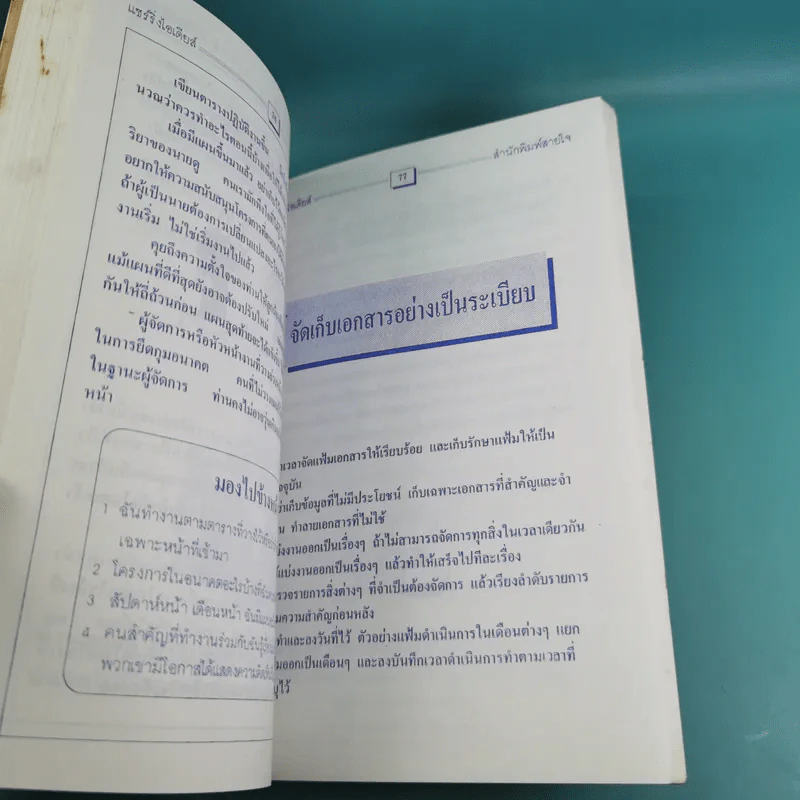 แชร์ริ่งไอเดียส์
เขียนตารางปฏิบัติงานขึ้น
นวณว่าควรทำอะไรตอนนี้
เมื่อมีแผนขึ้นมาแล้ว
ริยาของนายดู คนเรามัก
อยากให้ความสนับสนุนโครงการ
ถ้าผู้เป็นนายต้องการเปลี่ยนแปลง
งานเริ่ม ไม่ใช่เริ่มงานไปแล้ว
คุยถึงความตั้งใจของท่านให้
แม้แผนที่ดีที่สุดยังอาจต้องปรับใหม่
กันให้ถี่ถ้วนก่อน แผนสุดท้าย
ผู้จัดการหรือหัวหน้างานที่
ในการยึดกุมอนาคต คนที่ไม่
ในฐานะผู้จัดการ ท่านคงไม่อาจ
หน้า
มองไปข้าง
1 ฉันทำงานตามตารางที่วางไว้
เฉพาะหน้าที่เข้ามา
2 โครงการในอนาคตอะไรบ้างที่
3 สัปดาห์หน้า เดือนหน้า ฉัน
๔ คนสำคัญที่ทำงานร่วมกับฉัน
พวกเขามีโอกาสได้แสดงความ
เดียส์
77
สำนักพิมพ์สายใจ
จัดเก็บเอกสารอย่างเป็นระเบียบ
าเวลาจัดแฟ้มเอกสารให้เรียบร้อย และเก็บรักษาแฟ้มให้เป็น
จุบัน
่าเก็บข้อมูลที่ไม่มีประโยชน์ เก็บเฉพาะเอกสารที่สำคัญและจำ
น ทำลายเอกสารที่ไม่ใช้
่งงานออกเป็นเรื่องๆ ถ้าไม่สามารถจัดการทุกสิ่งในเวลาเดียวกัน
้แบ่งงานออกเป็นเรื่องๆ แล้วทำให้เสร็จไปทีละเรื่อง
รวจรายการสิ่งต่างๆ ที่จำเป็นต้องจัดการ แล้วเรียงลำดับรายการ
มความสำคัญก่อนหลัง
ทำและลงวันที่ไว้ ตัวอย่างแฟ้มดำเนินการในเดือนต่างๆ แยก
มออกเป็นเดือนๆ และลงบันทึกเวลาดำเนินการทำตามเวลาที่
ุไว้